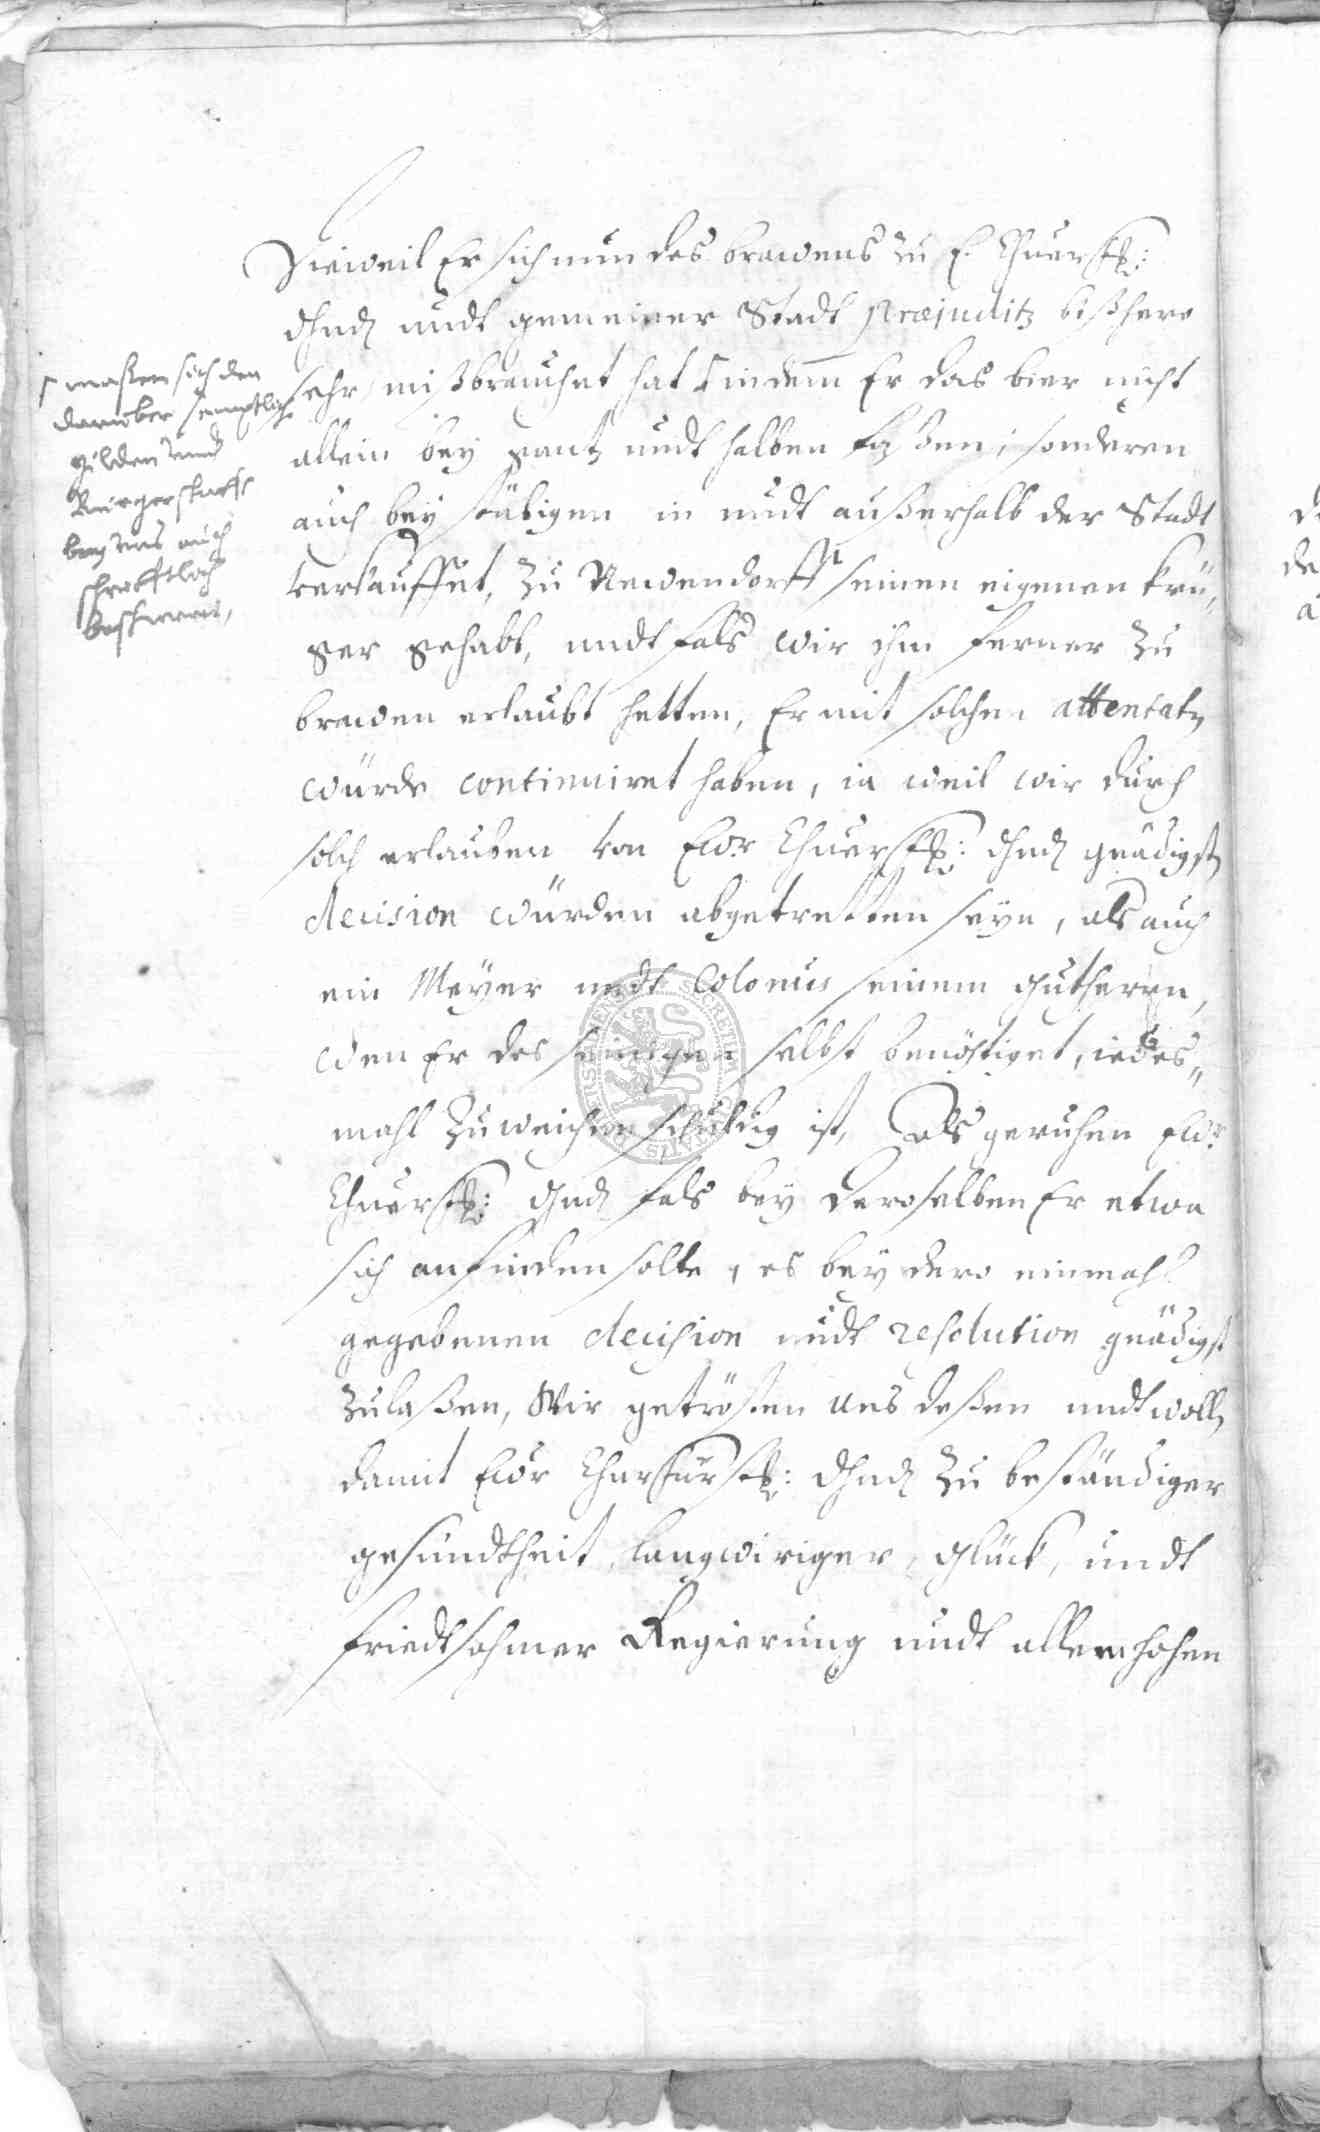 Dieweil Er sich nun des brawens zu E. Churf:
dhnd undt gemeiner Stadt præjuditz bißhero
sehr mißbrauchet hat indem Er das bier nicht
allein bey gantz undt halben faßen, sonderen
auch bey stübigen in undt außerhalb der Stadt
verkauffet, zu Newendorff seinen eigenen krü,
ger gehabt, undt fals wir ihm ferner zu
brawen erlaubt hetten, Er mit solchen attentatn
würde continuiret haben, ia weil wir durch
solch erlauben von Ewr Churf: dhnd gnädigstn
decision würden abgetretten seyn, als auch
ein Meyer undt Colonus seinem gutherrn,
wen Er des seinigen selbst benöhtiget, iedes„
mahl zuweichen schuldig ist, Als geruhen Ewr
Churf: dhnd fals bey deroselben Er etwa
sich anfinden solte, es bey dero einmahl
gegebenen decision undt resolution gnädigst
zulaßen, Wir getrösten uns deßen undt wolln
damit Ewr Churfürst: dhnd zu beständiger
gesundtheit, langwiriger, glück, undt
friedtsahmer Regierung undt allem hohen
maßen sich den
darüber semptliche
gilden und
Bürgerschafft
bey uns auch
schrifftlich
beschweret,